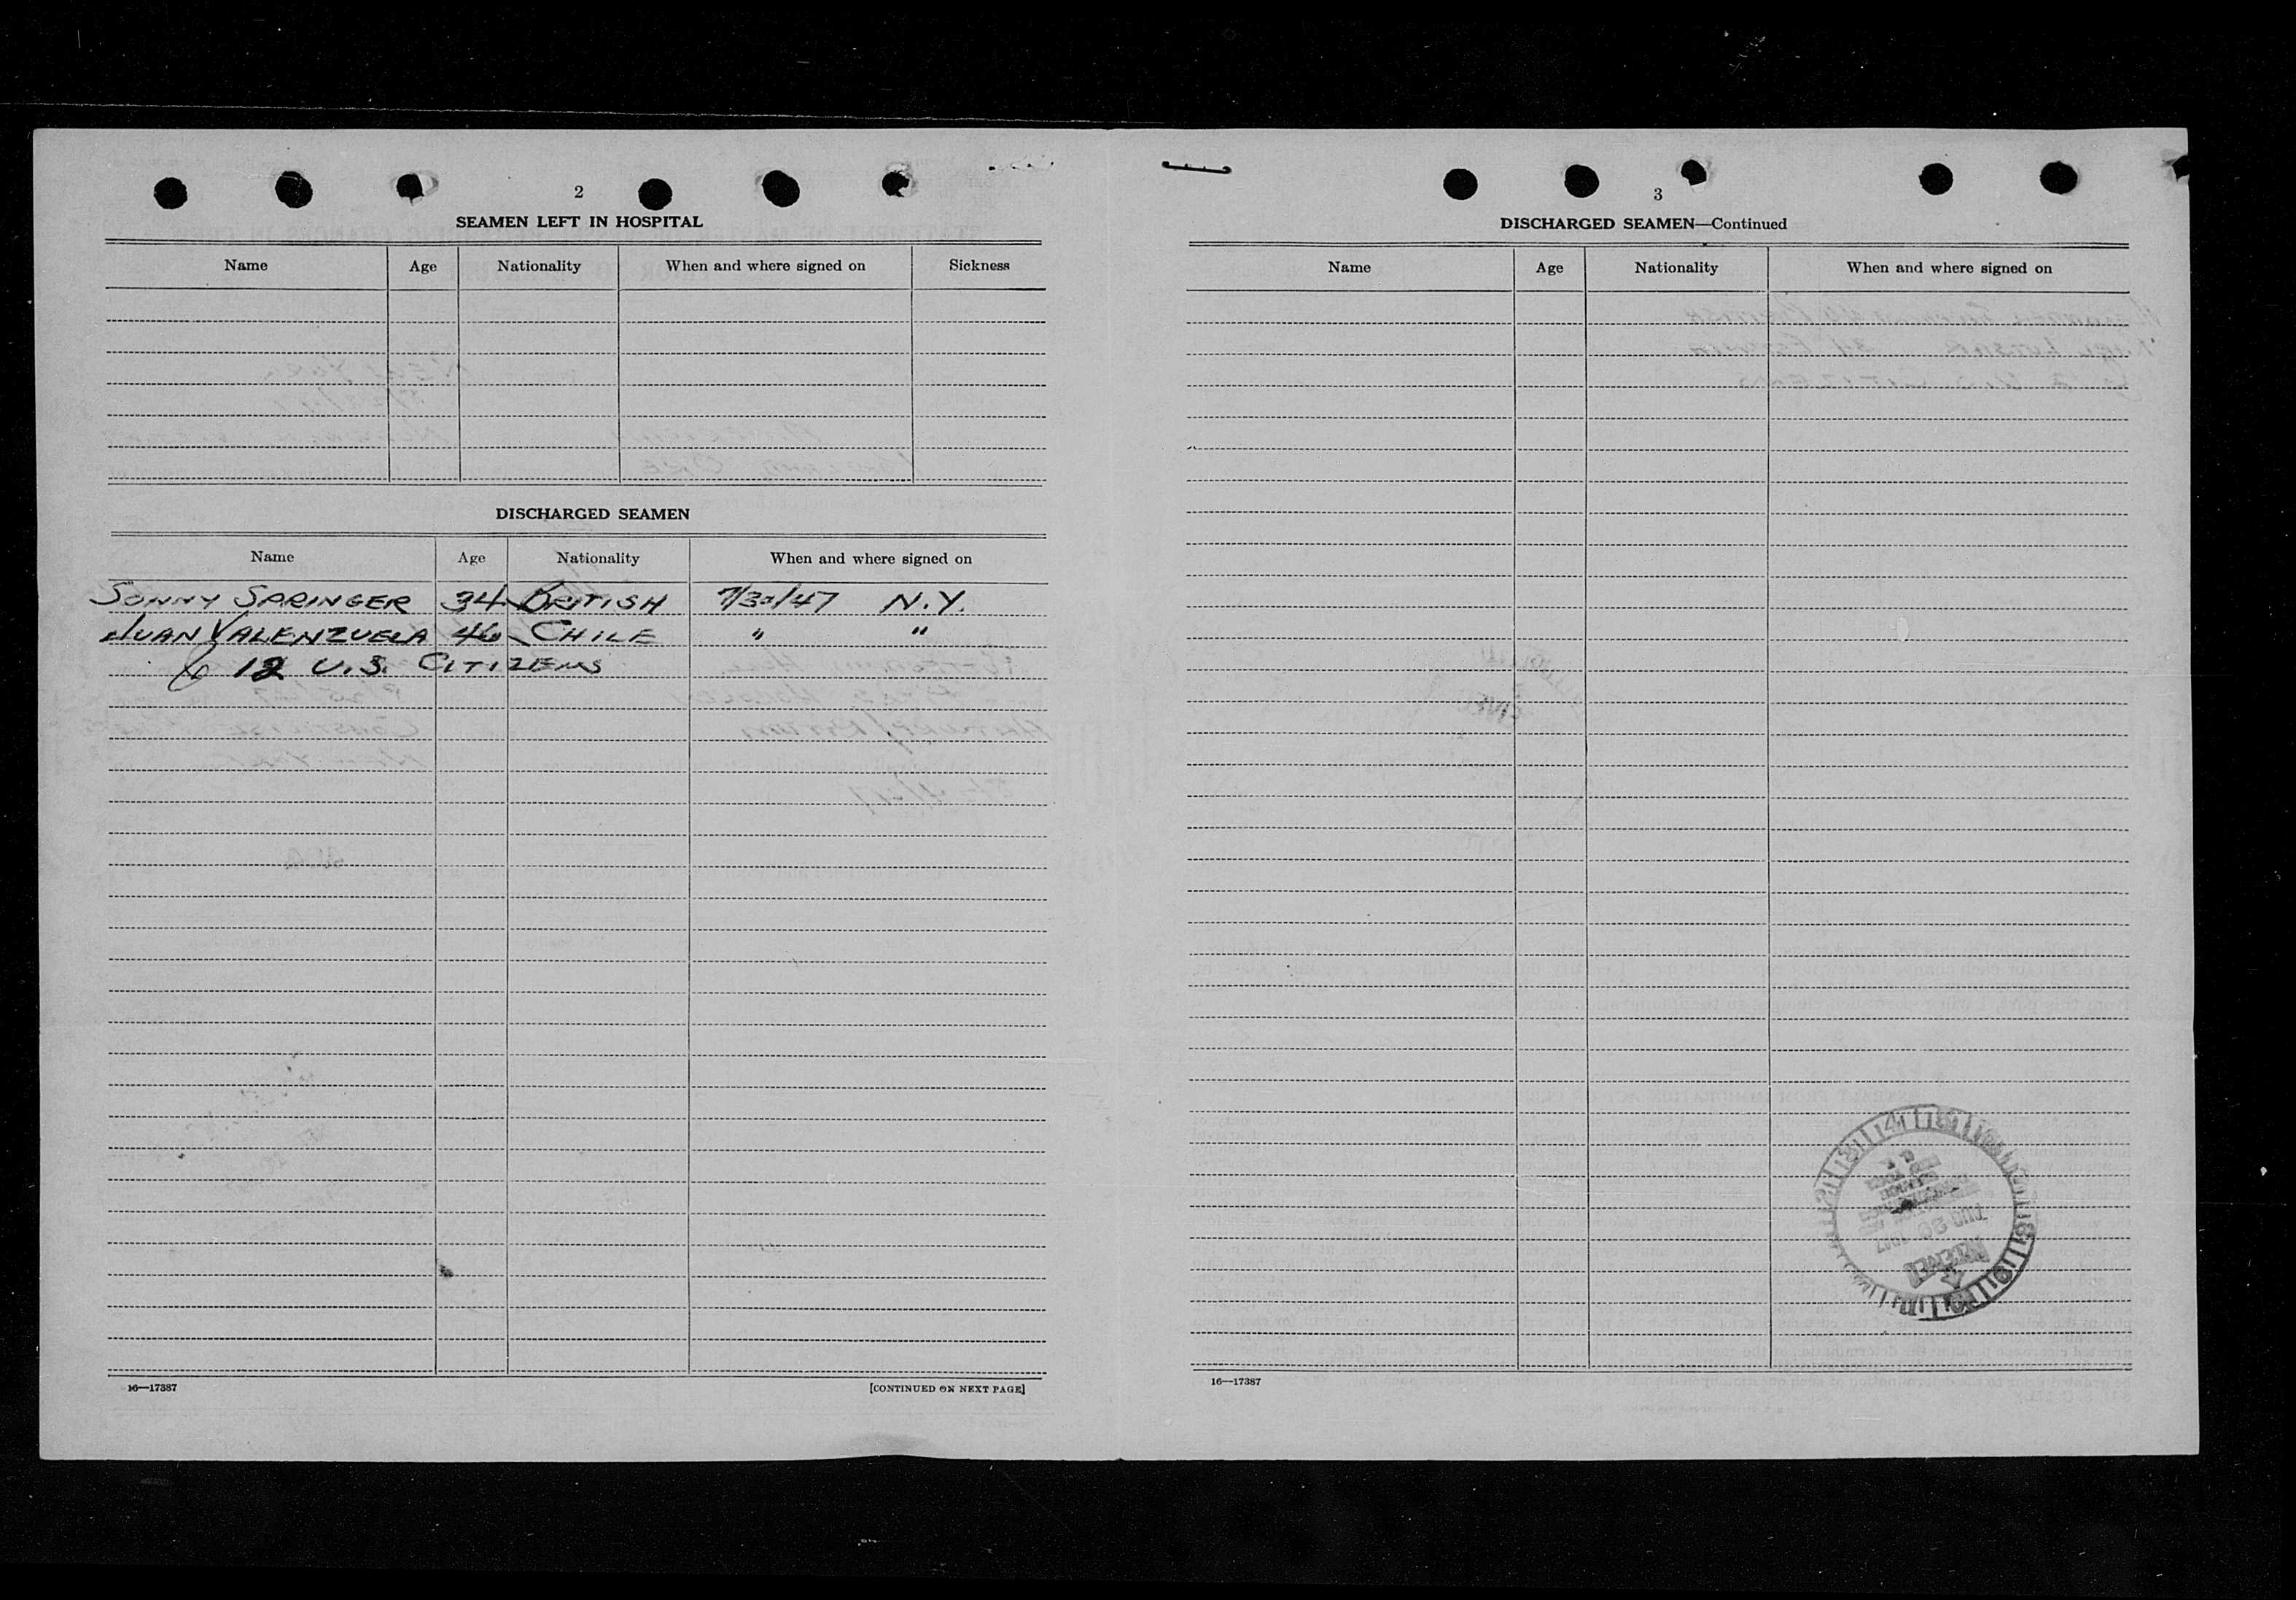 2
SEAMEN LEFT IN HOSPITAL
Name Age Nationality When and where signed on Sickness
DISCHARGED SEAMEN
Name Age Nationality When and where signed on
SONNY SPRINGER 34 BRITISH 7/30/47 N.Y.
JUAN VALENZUELA 46 CHILE " "
& 12 U.S. CITIZENS
16—17387 [CONTINUED ON NEXT PAGE]
3
DISCHARGED SEAMEN—Continued
Name Age Nationality When and where signed on
RECEIVED
AUG 20 1947
16—17387